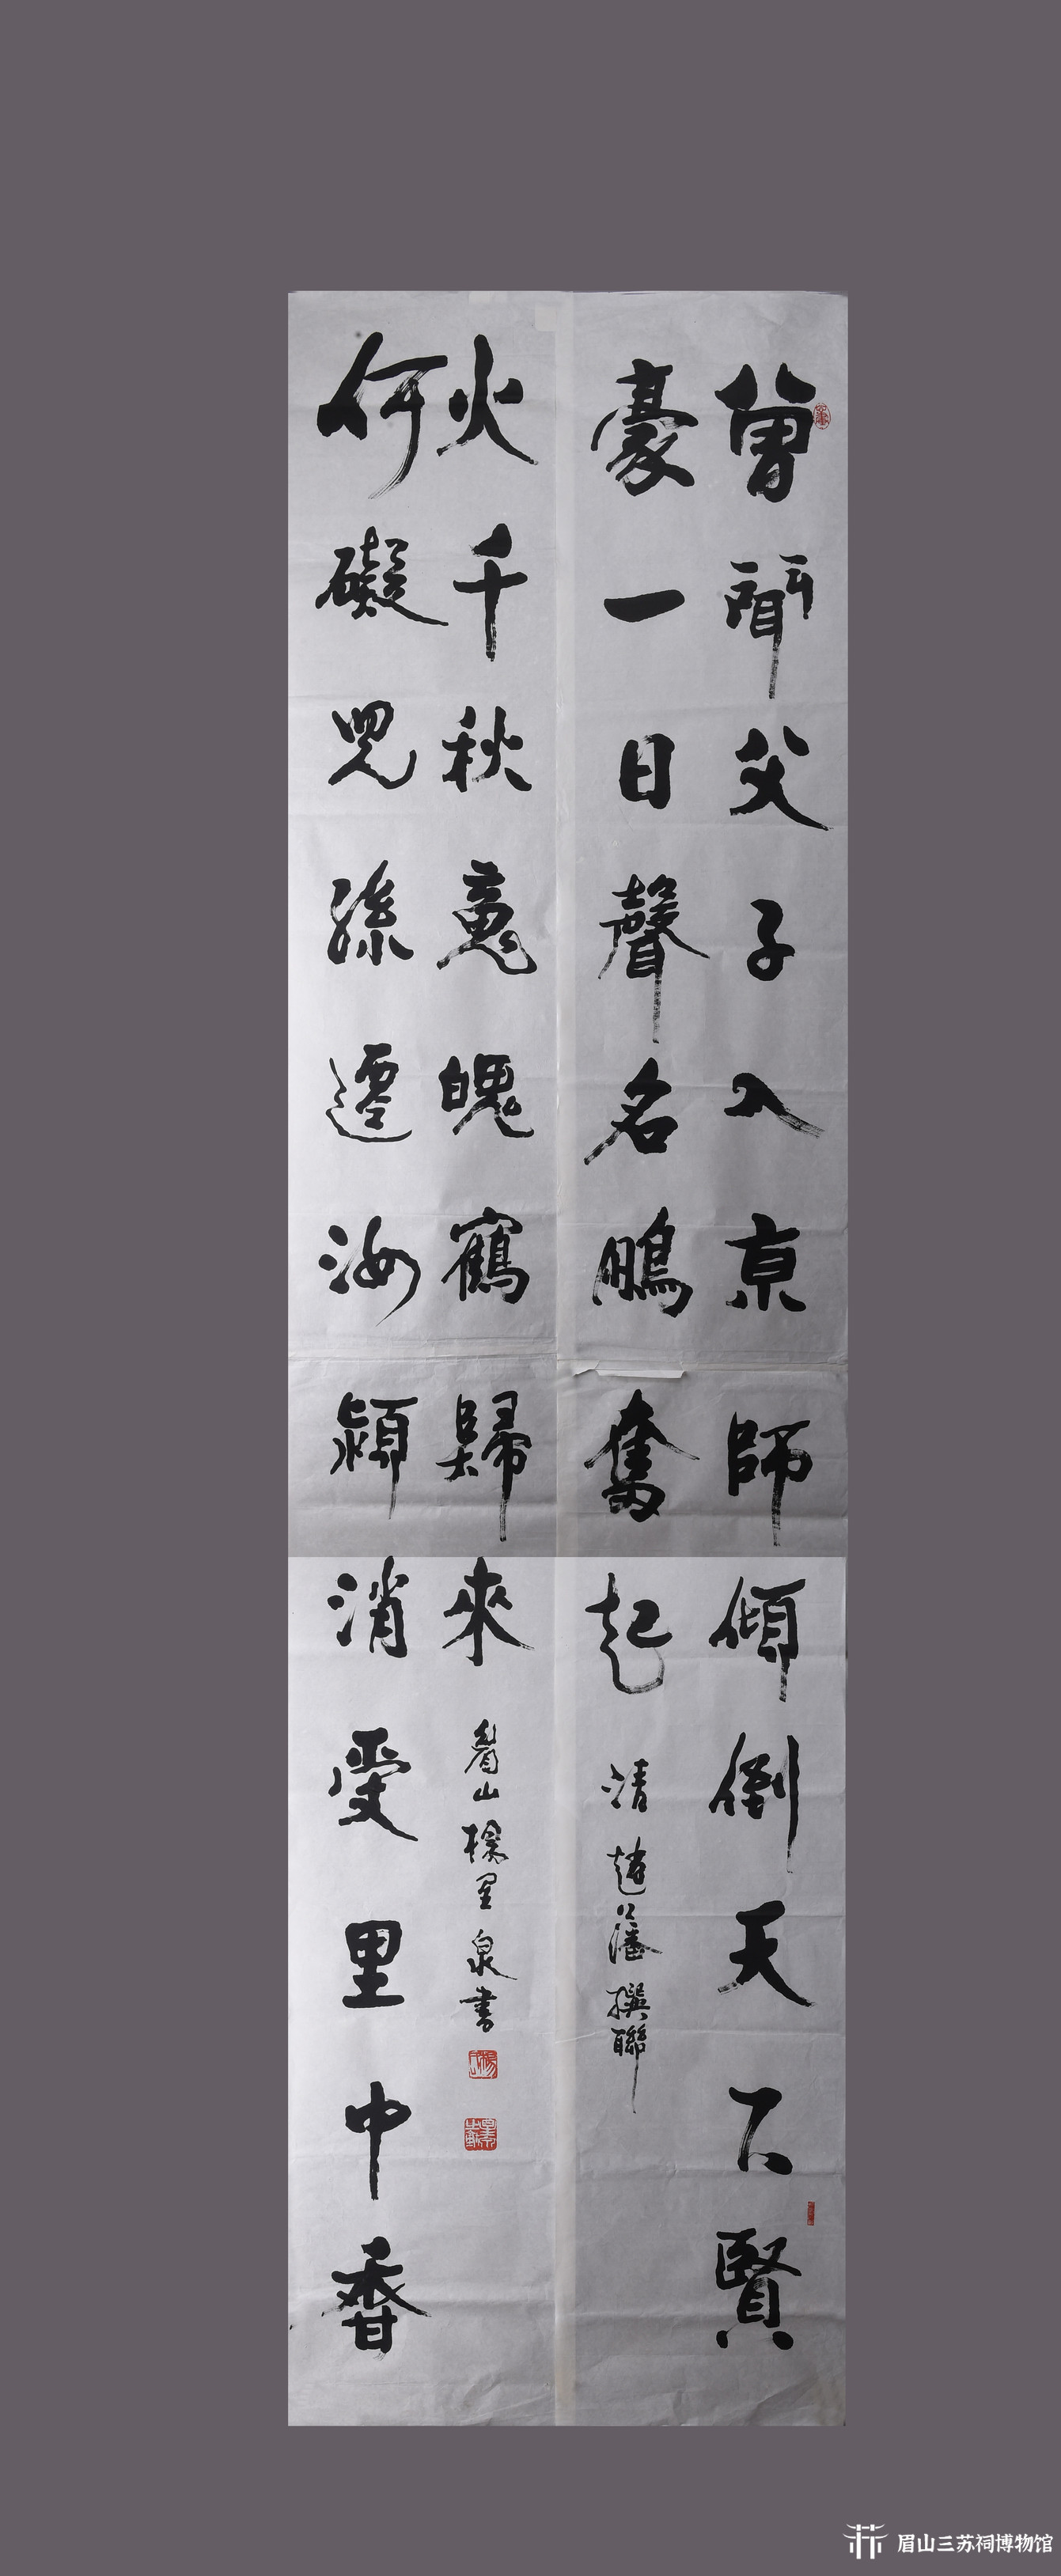 曾聞父子入京師傾倒天下賢
豪一日聲名鵬奮起
清 趙藩撰聯
何礙兒孫遷汝潁消受里中香
火千秋魂魄鶴歸來
眉山楊星泉書
眉山三苏祠博物馆